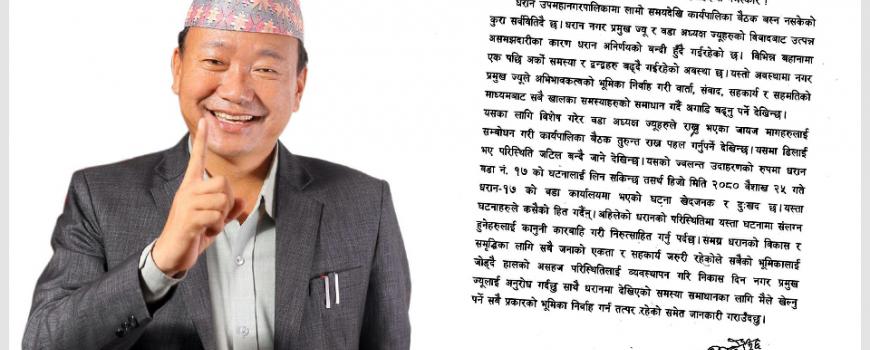 धरान उपमहानगरपालिकामा लामो समयदेखि कार्यपालिका बैठक बस्न नसकेको
कुरा सर्वविदितै छ। धरान नगर प्रमुख ज्यू र वडा अध्यक्ष ज्यूहरुको बिबादबाट उत्पन्न
असमझदारीका कारण धरान अनिर्णयको बन्दी हुँदै गईरहेको छ। विभिन्न बहानामा
एक पछि अर्को समस्या र द्वन्द्वहरु बढ्दै गईरहेको अवस्था छ। यस्तो अवस्थामा नगर
प्रमुख ज्यूले अभिभावकत्वको भूमिका निर्वाह गरी वार्ता, संवाद, सहकार्य र सहमतिको
माध्यमबाट सबै खालका समस्याहरुको समाधान गर्दै अगाडि बढ्नु पर्ने देखिन्छ।
यसका लागि बिशेष गरेर वडा अध्यक्ष ज्यूहरुले राख्नु भएका जायज मागहरुलाई
सम्बोधन गरी कार्यपालिका बैठक तुरुन्त राख्न पहल गर्नुपर्ने देखिन्छ। यसमा ढिलाई
भए परिस्थिति जटिल बन्दै जाने देखिन्छ। यसको ज्वलन्त उदाहरणको रुपमा धरान
वडा नं. १७ को घटनालाई लिन सकिन्छ तसर्थ हिजो मिति २०८० बैशाख २५ गते
धरान-१७ को वडा कार्यालयमा भएको घटना खेदजनक र दुःखद छ। यस्ता
घटनाहरुले कसैको हित गर्दैन्। अहिलेको धरानको परिस्थितिमा यस्ता घटनामा संलग्न
हुनेहरुलाई कानुनी कारबाहि गरी निरुत्साहित गर्नु पर्वछ। समग्र धरानको बिकास र
समृद्धिका लागि सबै जनाको एकता र सहकार्य जरुरी रहेकोले सबैको भूमिकालाई
जोड्दै हालको असहज परिस्थितिलाई व्यवस्थापन गरि निकास दिन नगर प्रमुख
ज्यूलाई अनुरोध गर्दछु साथै धरानमा देखिएको समस्या समाधानका लागि मैले खेल्नु
पर्ने सबै प्रकारको भूमिका निर्वाह गर्न तत्पर रहेको समेत जानकारी गराउँदछु।